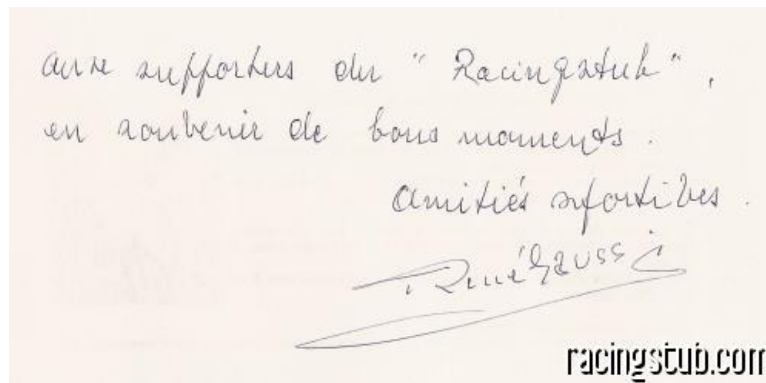 aux supporters du "Racingstub",
en souvenir de bons moments.
Amitiés sportives.
René Hauss
racingstub.com